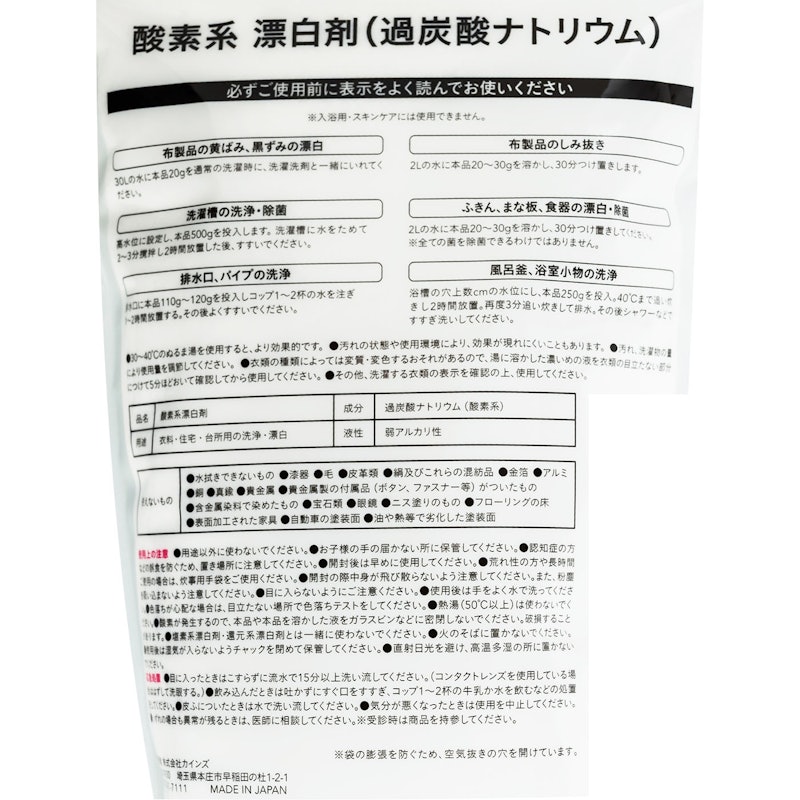 酸素系 漂白剤(過炭酸ナトリウム)
必ずご使用前に表示をよく読んでお使いください
※入浴用・スキンケアには使用できません。
布製品の黄ばみ、黒ずみの漂白
30Lの水に本品20gを通常の洗濯時に、洗濯洗剤と一緒にいれてく
ださい。
布製品のしみ抜き
2Lの水に本品20~30gを溶かし、30分つけ置きします。
洗濯槽の洗浄・除菌
高水位に設定し、本品500gを投入します。洗濯槽に水をためて
2~3分攪拌し2時間放置した後、すすいでください。
ふきん、まな板、食器の漂白・除菌
2Lの水に本品20~30gを溶かし、30分つけ置きしてください。
※全ての菌を除菌できるわけではありません。
排水口、パイプの洗浄
排水口に本品110g~120gを投入しコップ1~2杯の水を注ぎ
1~2時間放置する。その後よくすすいでください。
風呂釜、浴室小物の洗浄
浴槽の穴上数cmの水位にし、本品250gを投入。40℃まで追い炊
きし2時間放置。再度3分追い炊きして排水。その後シャワーなどで
すすぎ洗いしてください。
●30~40℃のぬるま湯を使用すると、より効果的です。 ●汚れの状態や使用環境により、効果が現れにくいこともあります。 ●汚れ、洗濯物の量
により使用量を調節してください。 ●衣類の種類によっては変質・変色するおそれがあるので、湯に溶かした濃いめの液を衣類の目立たない部分
につけて5分ほどおいて確認してから使用してください。 ●その他、洗濯する衣類の表示を確認の上、使用してください。
品名 酸素系漂白剤 成分 過炭酸ナトリウム(酸素系)
用途 衣料・住宅・台所用の洗浄・漂白 液性 弱アルカリ性
使えないもの
●水拭きできないもの ●漆器 ●毛 ●皮革類 ●絹及びこれらの混紡品 ●金箔 ●アルミ
●銅 ●真鍮 ●貴金属 ●貴金属製の付属品(ボタン、ファスナー等)がついたもの
●含金属染料で染めたもの ●宝石類 ●眼鏡 ●ニス塗りのもの ●フローリングの床
●表面加工された家具 ●自動車の塗装面 ●油や熱等で劣化した塗装面
使用上の注意 ●用途以外に使わないでください。●お子様の手の届かない所に保管してください。●認知症の方
などの誤食を防ぐため、置き場所に注意してください。●開封後は早めに使用してください。●荒れ性の方や長時間
ご使用の場合は、炊事用手袋をご使用ください。●開封の際中身が飛び散らないよう注意してください。また、粉塵
を吸い込まないよう注意してください。●目に入らないようにご注意ください。●使用後は手をよく水で洗ってくださ
い。●色落ちが心配な場合は、目立たない場所で色落ちテストをしてください。●熱湯(50℃以上)は使わないでく
ださい。●酸素が発生するので、本品や本品を溶かした液をガラスビンなどに密閉しないでください。破損すること
があります。●塩素系漂白剤・還元系漂白剤とは一緒に使わないでください。●火のそばに置かないでください。
●使用後は湿気が入らないようチャックを閉めて保管してください。●直射日光を避け、高温多湿の所に置かない
でください。
応急処置 ●目に入ったときはこすらずに流水で15分以上洗い流してください。(コンタクトレンズを使用している場
合ははずして洗眼する。)●飲み込んだときは吐かずにすぐ口をすすぎ、コップ1~2杯の牛乳か水を飲むなどの処置
をしてください。●皮ふについたときは水で洗い流してください。●気分が悪くなったときは使用を中止してください。
●いずれの場合も異常が残るときは、医師に相談してください。※受診時は商品を持参してください。
※袋の膨張を防ぐため、空気抜きの穴を開けています。
株式会社カインズ
埼玉県本庄市早稲田の杜1-2-1
7111 MADE IN JAPAN